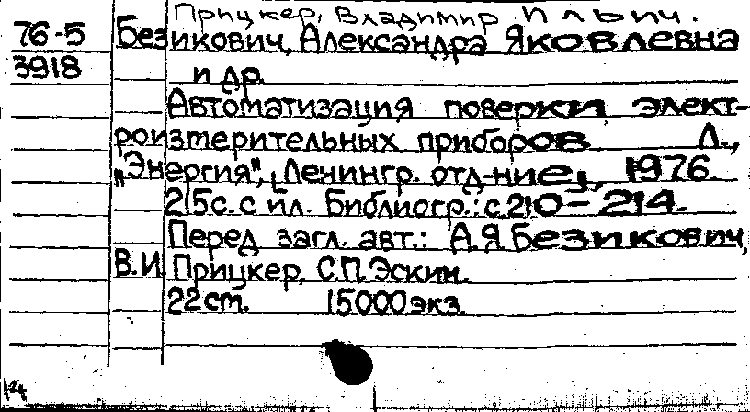 Прицкер, Владимир Ильич.
76-5 Безикович, Александра Яковлевна
3918 и др.
Автоматизация поверки элект-
роизмерительных приборов Л.,
"Энергия", [Ленингр. отд-ние], 1976.
215с. с ил. Библиогр.: с.210-214.
Перед загл. авт.: А.Я.Безикович,
В.И. Прицкер, С.П.Эскин.
22см. 15000экз.